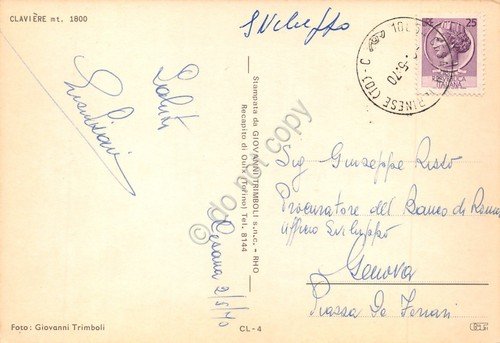 CLAVIÈRE mt. 1800
Saluti
Cesana 2/5/70
Foto: Giovanni Trimboli
Stampata da GIOVANNI TRIMBOLI s.n.c. - RHO
Recapito di Oulx (Torino) Tel. 8144
CL-4
do not copy
LIRE 25
5.70
(TO) - C
Sig. Giuseppe Risto
Procuratore del Banco di Roma
Ufficio Sviluppo
Genova
Piazza De Ferrari